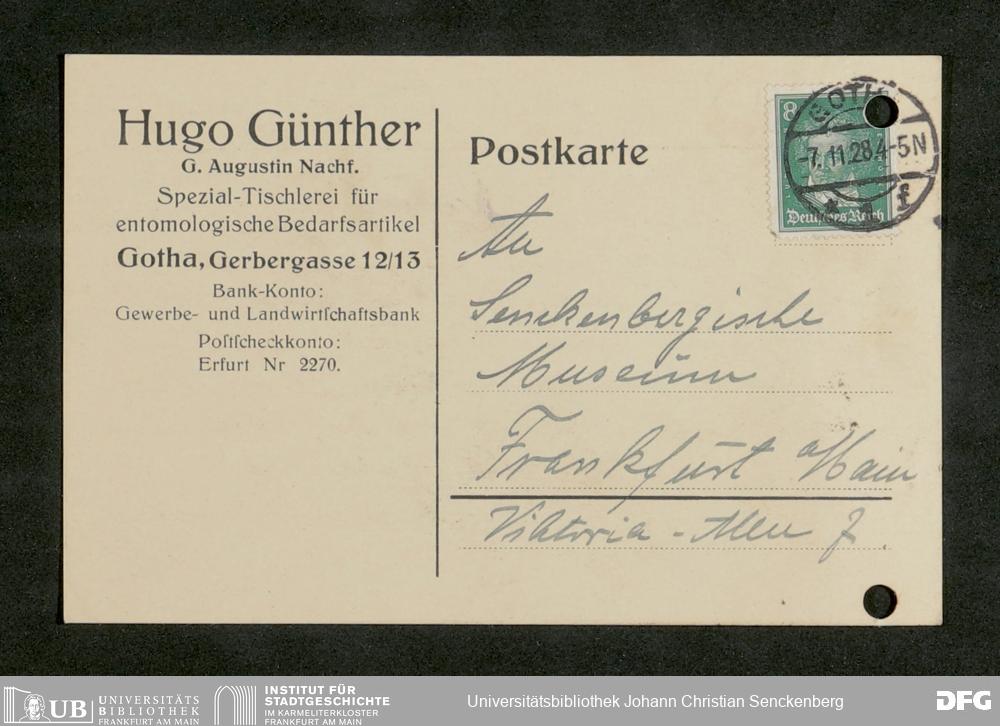 Hugo Günther
G. Augustin Nachf.
Spezial-Tischlerei für
entomologische Bedarfsartikel
Gotha, Gerbergasse 12/13
Bank-Konto:
Gewerbe- und Landwirtſchaftsbank
Poſtſcheckkonto:
Erfurt Nr 2270.
Postkarte
8
Deutsches Reich
GOTHA
-7.11.28 4-5N
* * f
An
Senckenbergische
Museum
Frankfurt a/Main
Viktoria-Allee 7
UB UNIVERSITÄTS
BIBLIOTHEK
FRANKFURT AM MAIN
INSTITUT FÜR
STADTGESCHICHTE
IM KARMELITERKLOSTER
FRANKFURT AM MAIN
Universitätsbibliothek Johann Christian Senckenberg
DFG